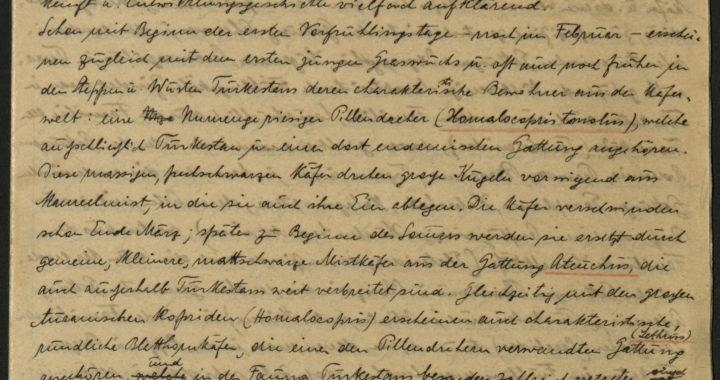 kunft u. Entwicklungsgeschichte vielfach aufklärend.
Schon mit Beginn der ersten Vorfrühlingstage – noch im Februar – erschei-
nen zugleich mit dem ersten jungen Graswuchs u. oft auch noch früher in
den Steppen u. Wüsten Turkestans deren charakteristische Bewohner aus der Käfer-
welt: eine Unmenge riesiger Pillendreher (Homalocopris tmolus), welche
ausschließlich Turkestan u. einer dort endemischen Gattung angehören.
Diese massigen, pechschwarzen Käfer drehen große Kugeln vorwiegend aus
, in die sie auch ihre Eier ablegen. Die Käfer verschwinden
schon Ende März; später zu Beginn des Sommers werden sie ersetzt durch
gemeine, kleinere, mattschwarze Mistkäfer aus der Gattung Ateuchus, die
auch außerhalb Turkestans weit verbreitet sind. Gleichzeitig mit den großen
turanischen Kopriden (Homalocopris) erscheinen auch charakteristische,
(Lethrus)
rundliche Blatthornkäfer, die einer den Pillendrehern verwandten Gattung
und
angehören welche in der Fauna Turkestans besonders zahlreich vertreten
sind